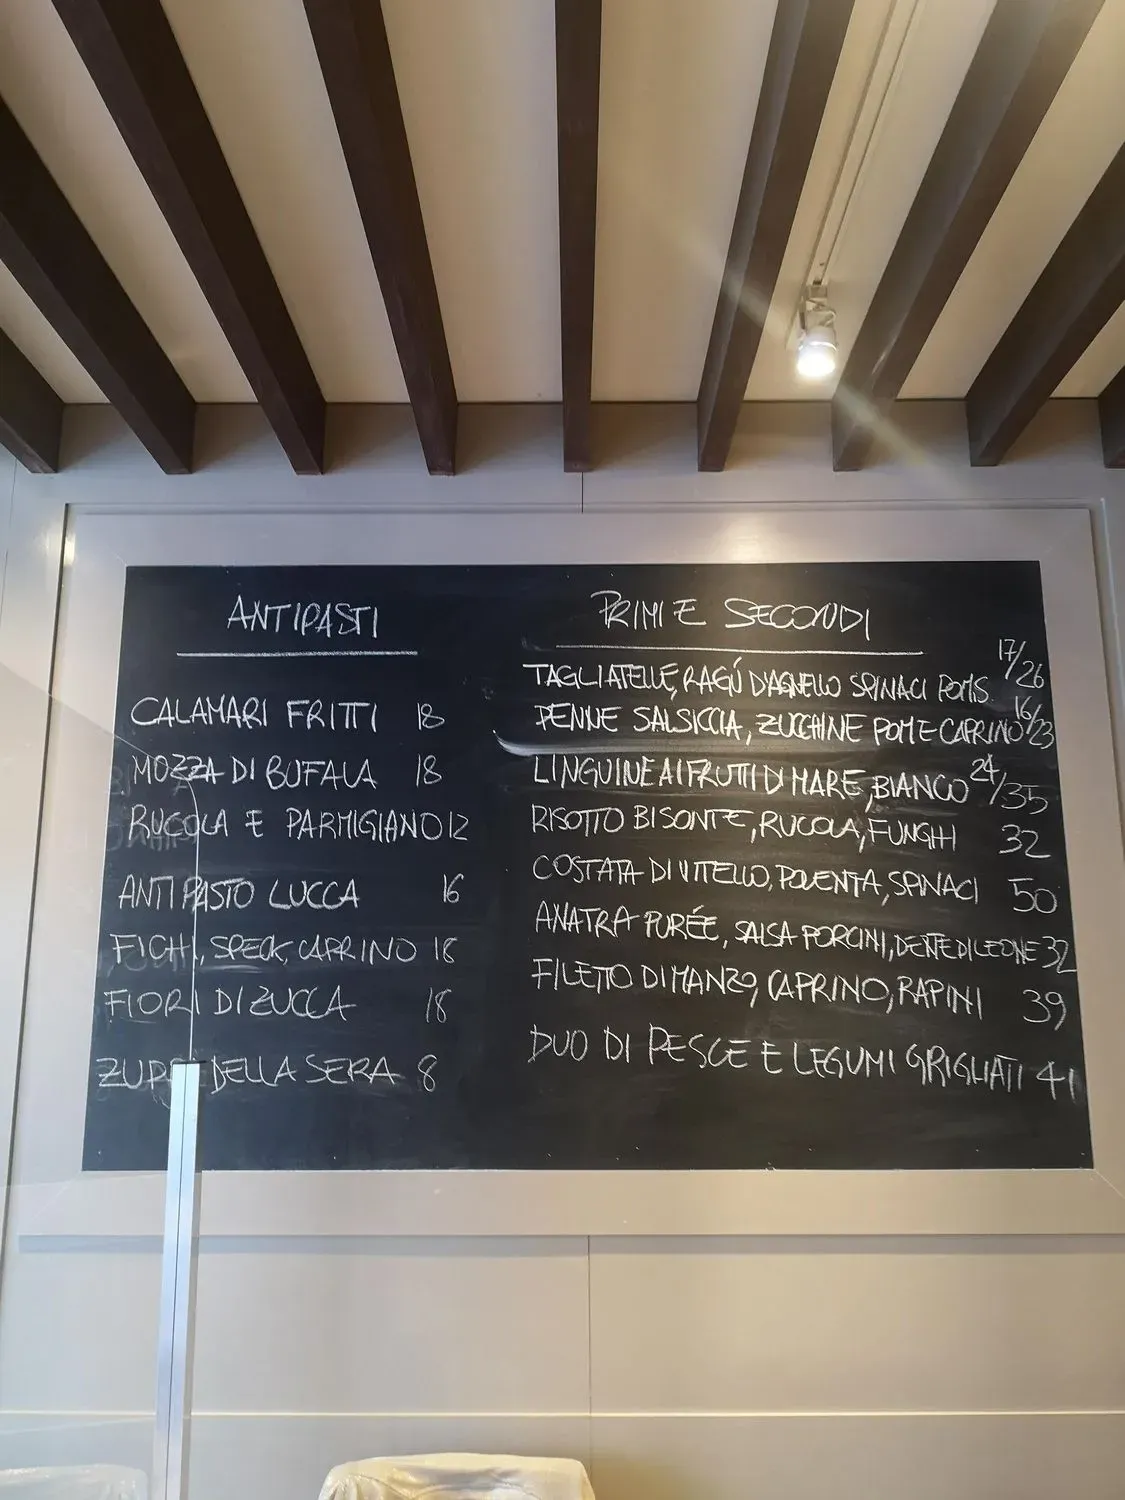 ANTIPASTI
CALAMARI FRITTI 18
MOZZA DI BUFALA 18
RUCOLA E PARMIGIANO 12
ANTIPASTO LUCCA 16
FICHI, SPECK, CAPRINO 18
FIORI DI ZUCCA 18
ZUPPA DELLA SERA 8
PRIMI E SECONDI
TAGLIATELLE, RAGÚ D'AGNELLO SPINACI POMS. 17/26
PENNE SALSICCIA, ZUCCHINE POM E CAPRINO 16/23
LINGUINE AI FRUTTI DI MARE, BIANCO 24/35
RISOTTO BISONTE, RUCOLA, FUNGHI 32
COSTATA DI VITELLO, POLENTA, SPINACI 50
ANATRA PURÉE, SALSA PORCINI, DENTE DI LEONE 32
FILETO DI MANZO, CAPRINO, RAPINI 39
DUO DI PESCE E LEGUMI GRIGLIATI 41